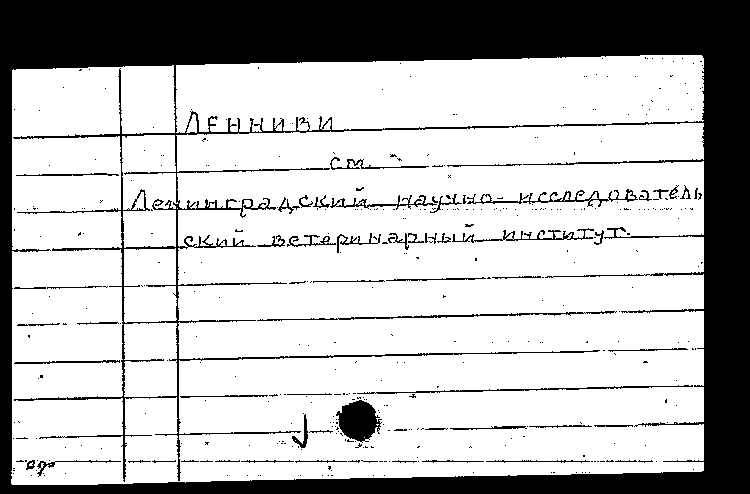 ЛЕННИВИ
см.
Ленинградский научно-исследователь
ский ветеринарный институт.